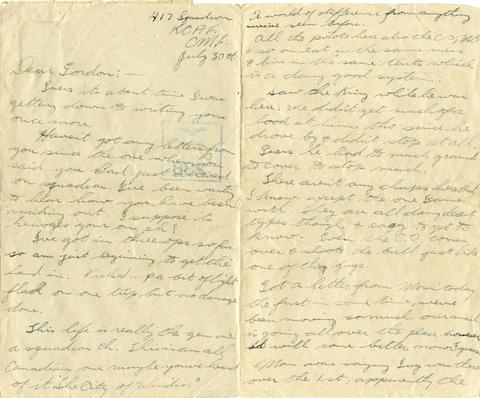 417 Squadron
RCAF.
CMF.
July 30th
Dear Gordon:-
Guess its about time I was
getting down to writing you
once more.
Haven't got any letters from
you since the one where you
said you had just arrived
on squadron. I've been waiting
to hear how you have been
making out. I suppose its
heavages your on eh!
I've got in three ops so far
so am just beginning to get the
hand in. Picked up a bit of light
flack on one trip but no damage
done.
This life is really the gen on
a squadron eh. This is an all
Canadian one maybe you've heard
of it "The City of Windsor"
A world of difference from anything
we've seen before.
All the pilots here also the C.O.,
& so on eat in the same mess
& live in the same tents which
is a dang good system.
Saw the King while he was
here; we didn't get much of a
look at him tho since he
drove by & didn't stop at all,
Guess he had to much ground
to cover to stop much.
There aren't any chaps here that
I know except I'm one
with. They are all damn decent
types though & easy to get to
know. Even the C.O. comes
over & shoots the bull just like
one of the guys.
Got a letter from Mom today
the first in some time, we've
been moving so much our mail
is going all over the place however
it will some better now I guess
Mom was saying Guy was there
over the 1st, apparently the